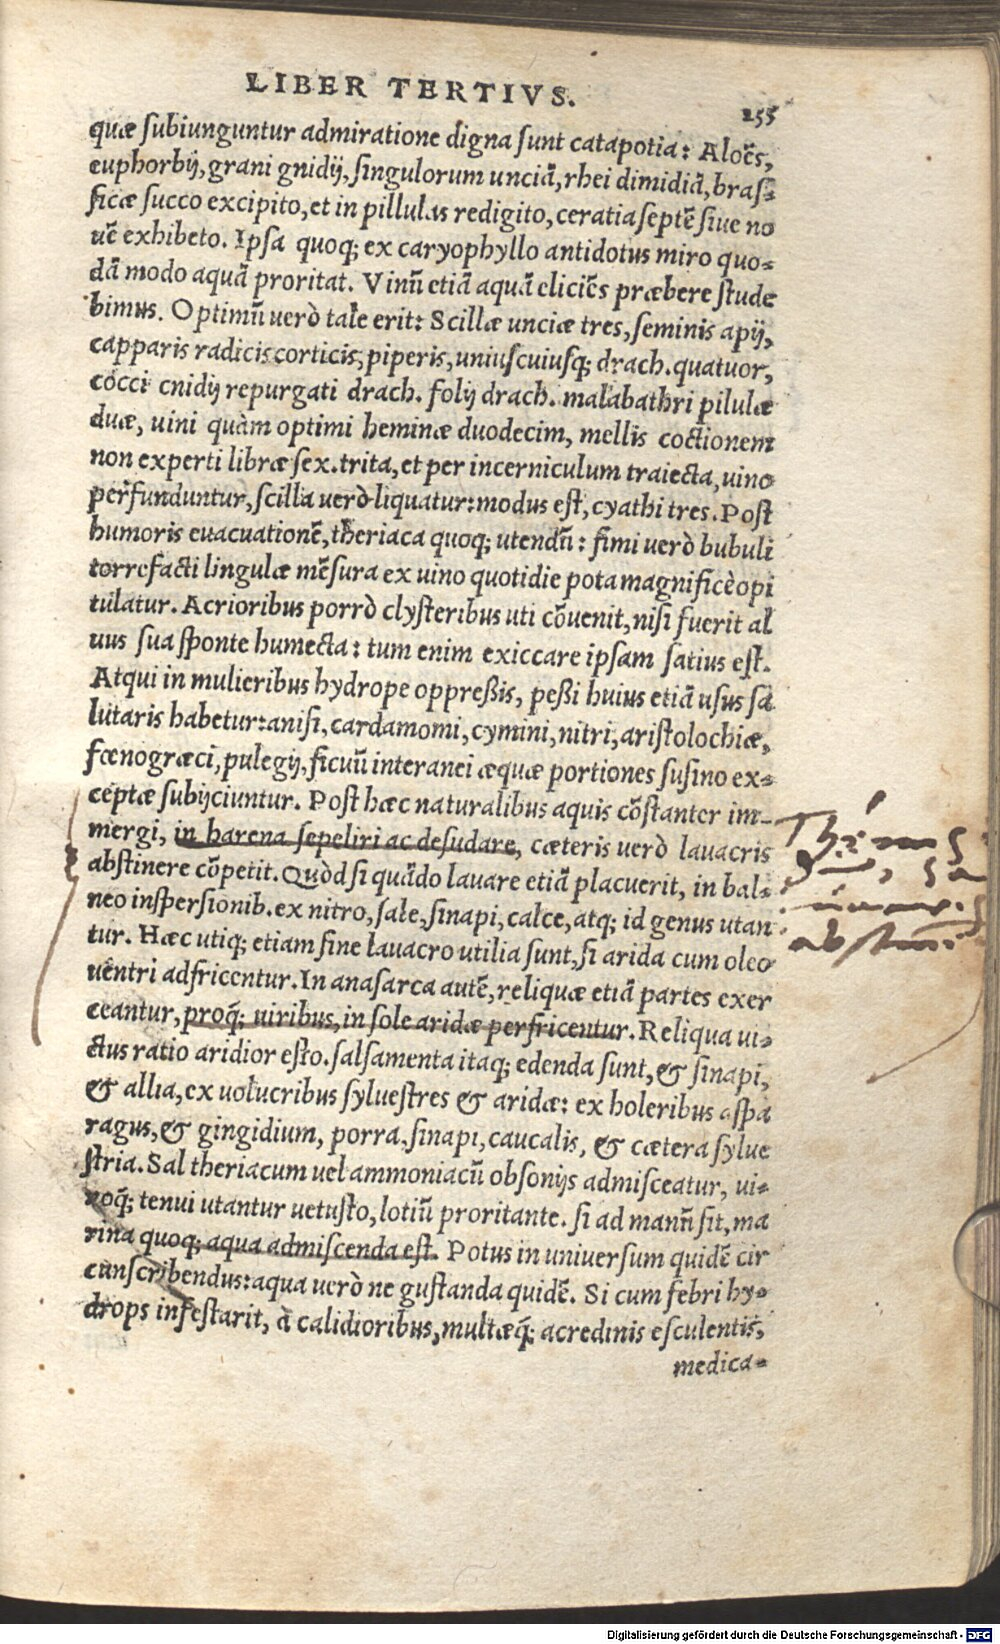 LIBER TERTIVS.
255
quæ subiunguntur admiratione digna sunt catapotia: Aloës,
euphorbij, grani gnidij, singulorum unciā, rhei dimidiā, bras=
sicæ succo excipito, et in pillulas redigito, ceratia septē siue no
uē exhibeto. Ipsa quoq; ex caryophyllo antidotus miro quo=
dā modo aquā proritat. Vinū etiā aquā eliciēs præbere stude
bimus. Optimū uerò tale erit: Scillæ unciæ tres, seminis apij,
capparis radicis corticis, piperis, uniuscuiusq; drach. quatuor,
cocci cnidij repurgati drach. folij drach. malabathri pilulæ
duæ, uini quàm optimi heminæ duodecim, mellis coctionem
non experti libræ sex. trita, et per incerniculum traiecta, uino
perfunduntur, scilla uerò liquatur: modus est, cyathi tres. Post
humoris euacuationē, theriaca quoq; utendū: fimi uerò bubuli
torrefacti lingulæ mēsura ex uino quotidie pota magnificè opi
tulatur. Acrioribus porrò clysteribus uti cōuenit, nisi fuerit al
uus sua sponte humecta: tum enim exiccare ipsam satius est.
Atqui in mulieribus hydrope oppreßis, peßi huius etiā usus sa
lutaris habetur: anisi, cardamomi, cymini, nitri, aristolochiæ,
fœnogræci, pulegij, ficuū interanei æquæ portiones susino ex=
ceptæ subijciuntur. Post hæc naturalibus aquis cōstanter im=
mergi, in harena sepeliri ac desudare, cæteris uerò lauacris
abstinere cōpetit. Quòd si quādo lauare etiā placuerit, in bal=
neo inspersionib. ex nitro, sale, sinapi, calce, atq; id genus utan
tur. Hæc utiq; etiam sine lauacro utilia sunt, si arida cum oleo
uentri adfricentur. In anasarca autē, reliquæ etiā partes exer
ceantur, proq; uiribus, in sole aridæ perfricentur. Reliqua ui=
ctus ratio aridior esto. salsamenta itaq; edenda sunt, & sinapi,
& allia, ex uolucribus syluestres & aridæ: ex holeribus aspa
ragus, & gingidium, porra, sinapi, caucalis, & cætera sylue
stria. Sal theriacum uel ammoniacū obsonijs admisceatur, ui=
noq; tenui utantur uetusto, lotiū proritante. si ad manū sit, ma
rina quoq; aqua admiscenda est. Potus in uniuersum quidē cir
cunscribendus: aqua uerò ne gustanda quidē. Si cum febri hy=
drops infestarit, à calidioribus, multæq; acredinis esculentis,
medica=
Digitalisierung gefördert durch die Deutsche Forschungsgemeinschaft - DFG